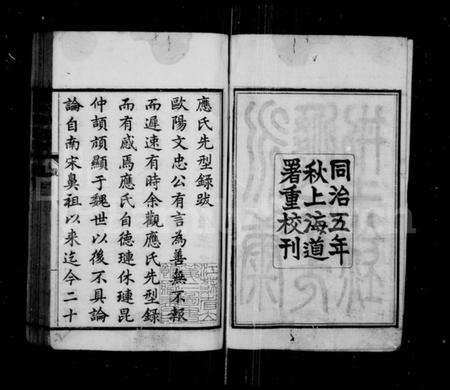 同治五年
秋上海道
署重校刊
應氏先型錄跋
歐陽文忠公有言為善無不報
而遲速有時余觀應氏先型錄
而有感焉應氏自德璉休璉昆
仲頡頏顯于魏世以後不具論
論自南宋鼻祖以來迄今二十